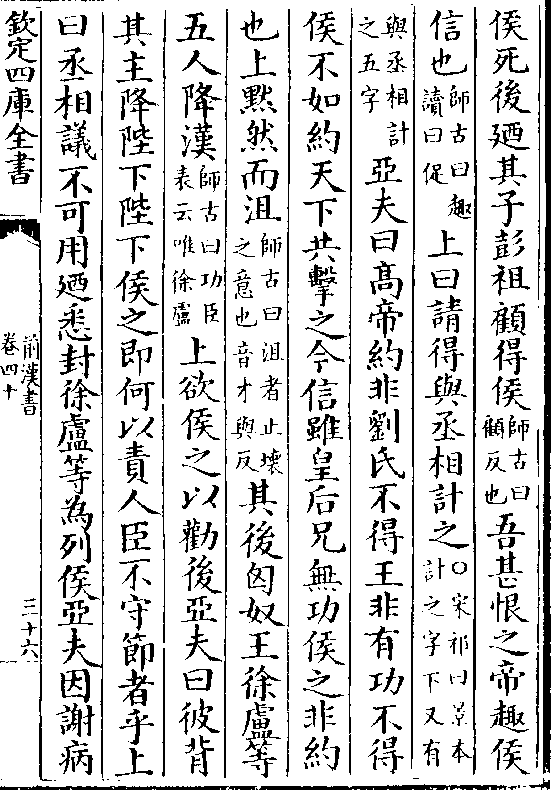 侯死後廼其子彭祖顧得侯師古曰顧反也吾甚恨之帝趣侯
信也師古曰趣讀曰促上曰請得與丞相計之○宋祁曰景本計之字下又有
與丞相計之五字亞夫曰高帝約非劉氏不得王非有功不得
侯不如約天下共擊之今信雖皇后兄無功侯之非約
也上黙然而沮師古曰沮者止壞之意也音才與反其後匈奴王徐盧等
五人降漢師古曰功臣表云唯徐盧上欲侯之以勸後亞夫曰彼背
其主降陛下陛下侯之即何以責人臣不守節者乎上
曰丞相議不可用廼悉封徐盧等為列侯亞夫因謝病
欽定四庫全書
前漢書
卷四十
三十六